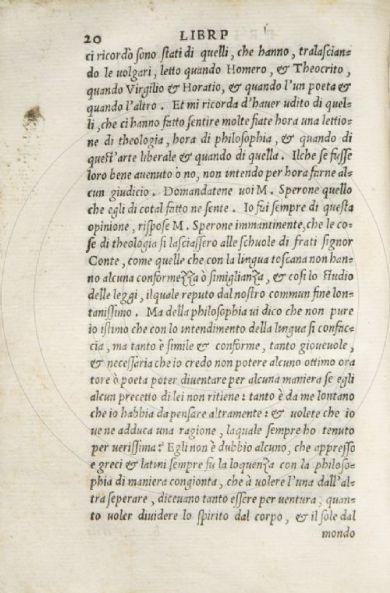 20 LIBRP
ci ricordò sono stati di quelli, che hanno, tralascian-
do le uolgari, letto quando Homero, & Theocrito,
quando Virgilio & Horatio, & quando l'un poeta &
quando l'altro. Et mi ricorda d'hauer udito di quel-
li, che ci hanno fatto sentire molte fiate hora una lettio-
ne di theologia, hora di philosophia, & quando di
quest'arte liberale & quando di quella. Ilche se fusse
loro bene auenuto ò no, non intendo per hora farne al-
cun giudicio. Domandatene uoi M. Sperone quello
che egli di cotal fatto ne sente. Io fui sempre di questa
opinione, rispose M. Sperone immantinente, che le co-
se di theologia si lasciassero alle schuole di frati signor
Conte, come quelle che con la lingua toscana non han-
no alcuna conformezza ò simiglianza, & cosi lo studio
delle leggi, ilquale reputo dal nostro commun fine lon-
tanissimo. Ma della philosophia ui dico che non pure
io istimo che con lo intendimento della lingua si confac-
cia, ma tanto è simile & conforme, tanto gioueuole,
& necessaria che io credo non potere alcuno ottimo ora
tore ò poeta poter diuentare per alcuna maniera se egli
alcun precetto di lei non ritiene: tanto è da me lontano
che io habbia da pensare altramente: & uolete che io
ue ne adduca una ragione, laquale sempre ho tenuto
per uerissima? Egli non è dubbio alcuno, che appresso
e greci & latini sempre fù la loquenza con la philoso-
phia di maniera congionta, che à uolere l'una dall'al-
tra seperare, diceuano tanto essere per uentura, quan-
to uoler diuidere lo spirito dal corpo, & il sole dal
mondo